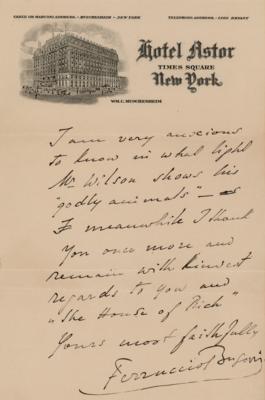 CABLE OR MARCONI ADDRESS. - MUSCHENHEIM - NEW YORK
TELEPHONE ADDRESS. - 2100 BRYANT
Hotel Astor
TIMES SQUARE
New York.
WM. C. MUSCHENHEIM
I am very anxious
to know in what light
Mr Wilson shows his
"godly animals" –
I meanwhile thank
you once more and
remain with kindest
regards to you and
"The House of Rich"
Yours most faithfully
Ferruccio Busoni